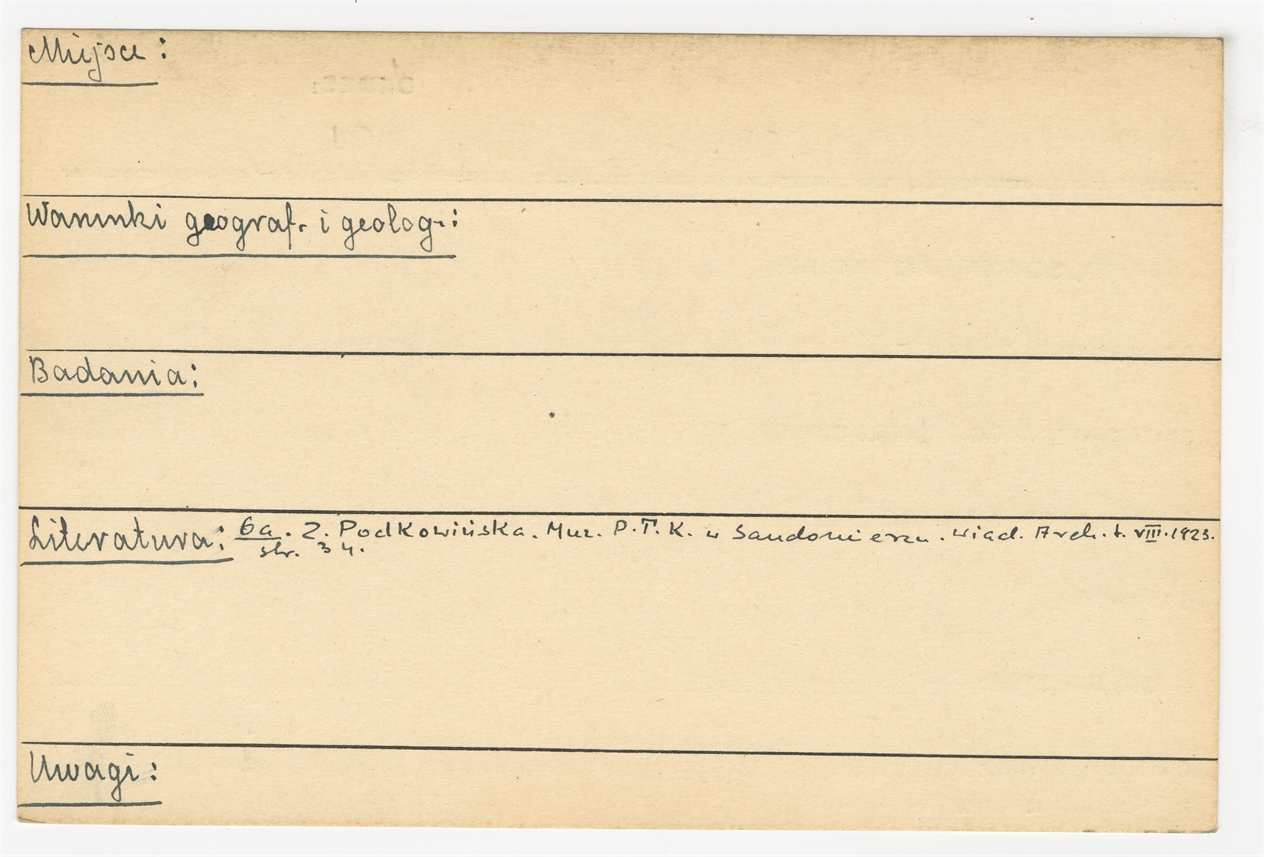 Miejsce:
Warunki geograf. i geolog.:
Badania:
Literatura: 6a. Z. Podkowińska. Muz. P.T.K. w Sandomierzu. Wiad. Arch. t. VIII. 1923.
str. 34.
Uwagi: